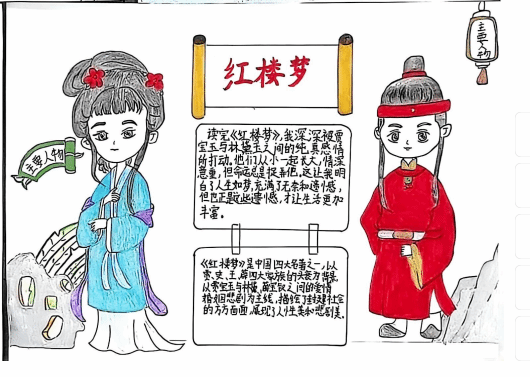 红楼梦
主要人物
主要人物
读完《红楼梦》,我深深被贾
宝玉与林黛玉之间的纯真感情
所打动。他们从小一起长大,情深
意重,但命运总是捉弄他,这让我明
白了人生如梦,充满了无奈和遗憾,
但也正是这些遗憾,才让生活更加
丰富。
《红楼梦》是中国四大名著之一,以
贾、史、王、薛四大家族的兴衰为背景,
从贾宝玉与林黛、薛宝钗之间的爱情
婚姻悲剧为主线,描绘了封建社会
的方方面面,展现了人性美和悲剧美。